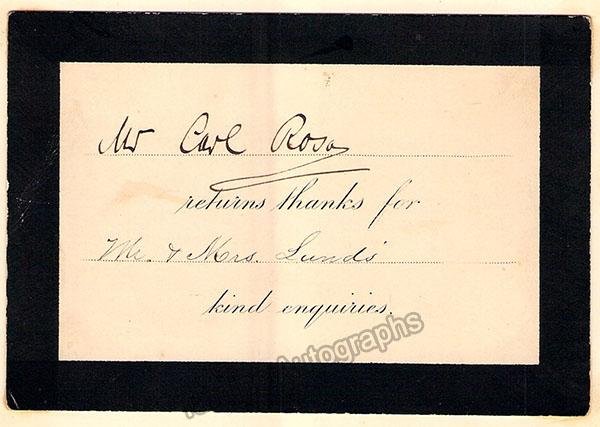 Mr Carl Rosa
returns thanks for
Mr. & Mrs. Lund's
kind enquiries.
Autographs